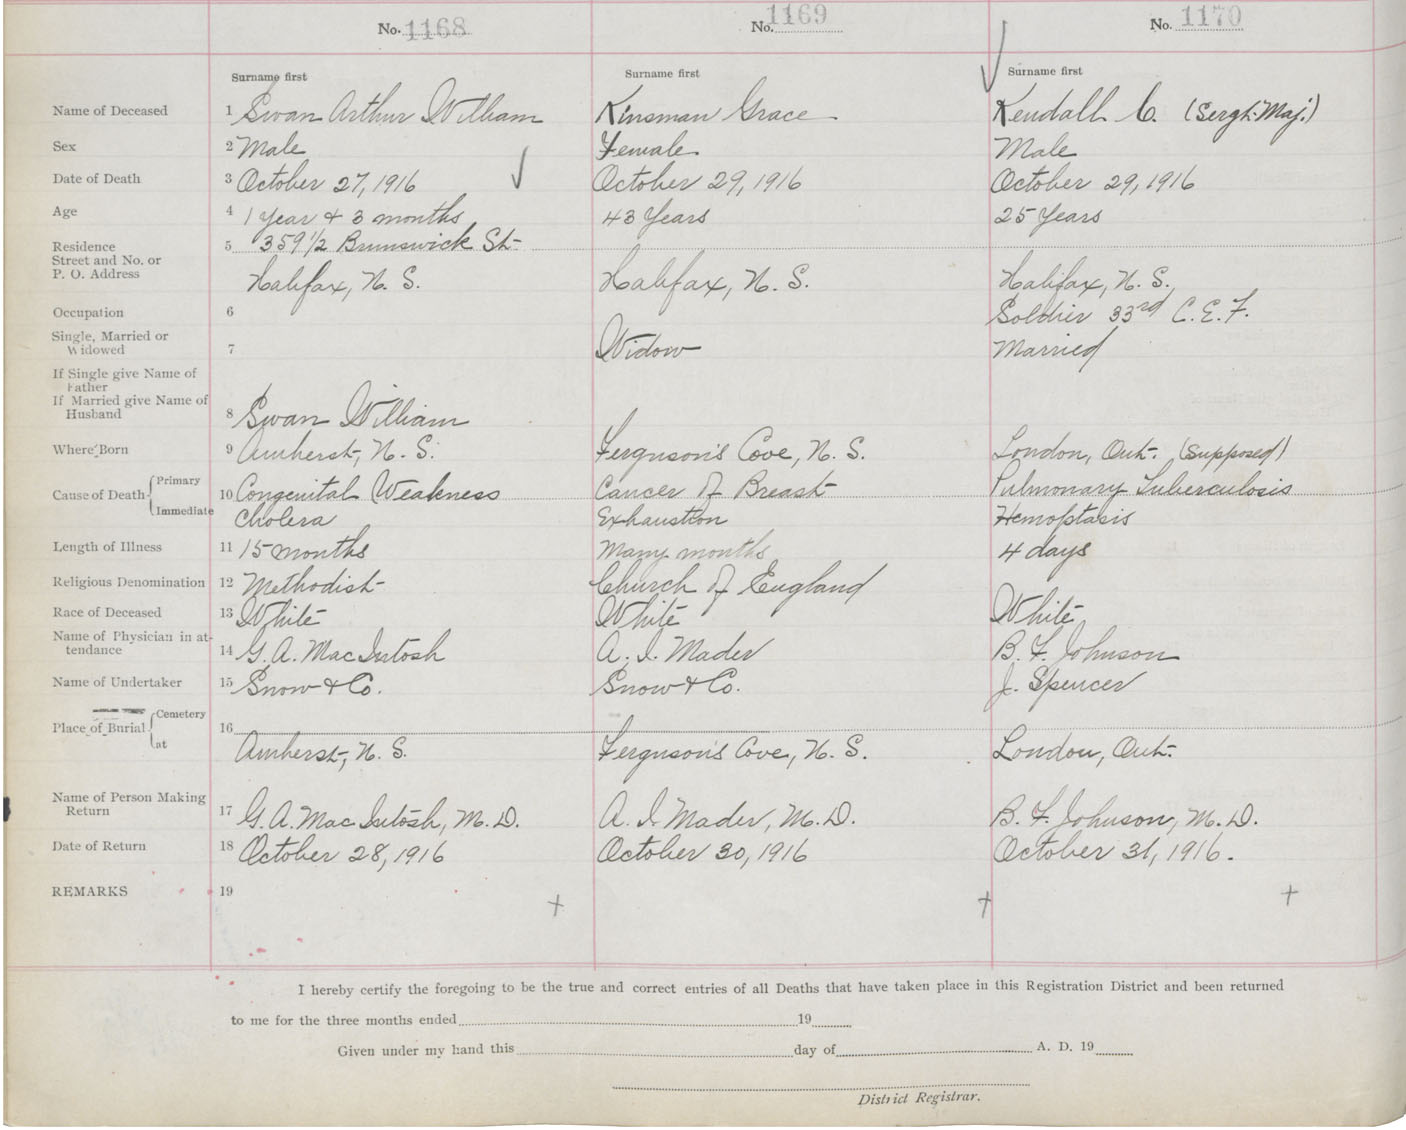 No. 1168 No. 1169 No. 1170
Surname first Surname first Surname first
Name of Deceased 1 Swan Arthur William Kinsman Grace Kendall C. (Sergt. Maj.)
Sex 2 Male Female Male
Date of Death 3 October 27, 1916 October 29, 1916 October 29, 1916
Age 4 1 Year & 3 months 43 Years 25 Years
Residence 5 359 1/2 Brunswick St.
Street and No. or
P. O. Address Halifax, N. S. Halifax, N. S. Halifax, N. S.
Occupation 6 Soldier 33rd C. E. F.
Single, Married or
Widowed 7 Widow Married
If Single give Name of
Father
If Married give Name of
Husband 8 Swan William
Where Born 9 Amherst, N. S. Ferguson's Cove, N. S. London, Ont. (Supposed)
Primary
Cause of Death 10 Congenital Weakness Cancer of Breast Pulmonary Tuberculosis
Immediate Cholera Exhaustion Hemoptasis
Length of Illness 11 15 months Many months 4 days
Religious Denomination 12 Methodist Church of England
Race of Deceased 13 White White White
Name of Physician in at-
tendance 14 G. A. MacIntosh A. I. Mader B. F. Johnson
Name of Undertaker 15 Snow & Co. Snow & Co. J. Spencer
Cemetery
Place of Burial 16
at Amherst, N. S. Ferguson's Cove, N. S. London, Ont.
Name of Person Making
Return 17 G. A. MacIntosh, M. D. A. I. Mader, M. D. B. F. Johnson, M. D.
Date of Return 18 October 28, 1916 October 30, 1916 October 31, 1916.
REMARKS 19
I hereby certify the foregoing to be the true and correct entries of all Deaths that have taken place in this Registration District and been returned
to me for the three months ended 19
Given under my hand this day of A. D. 19
District Registrar.